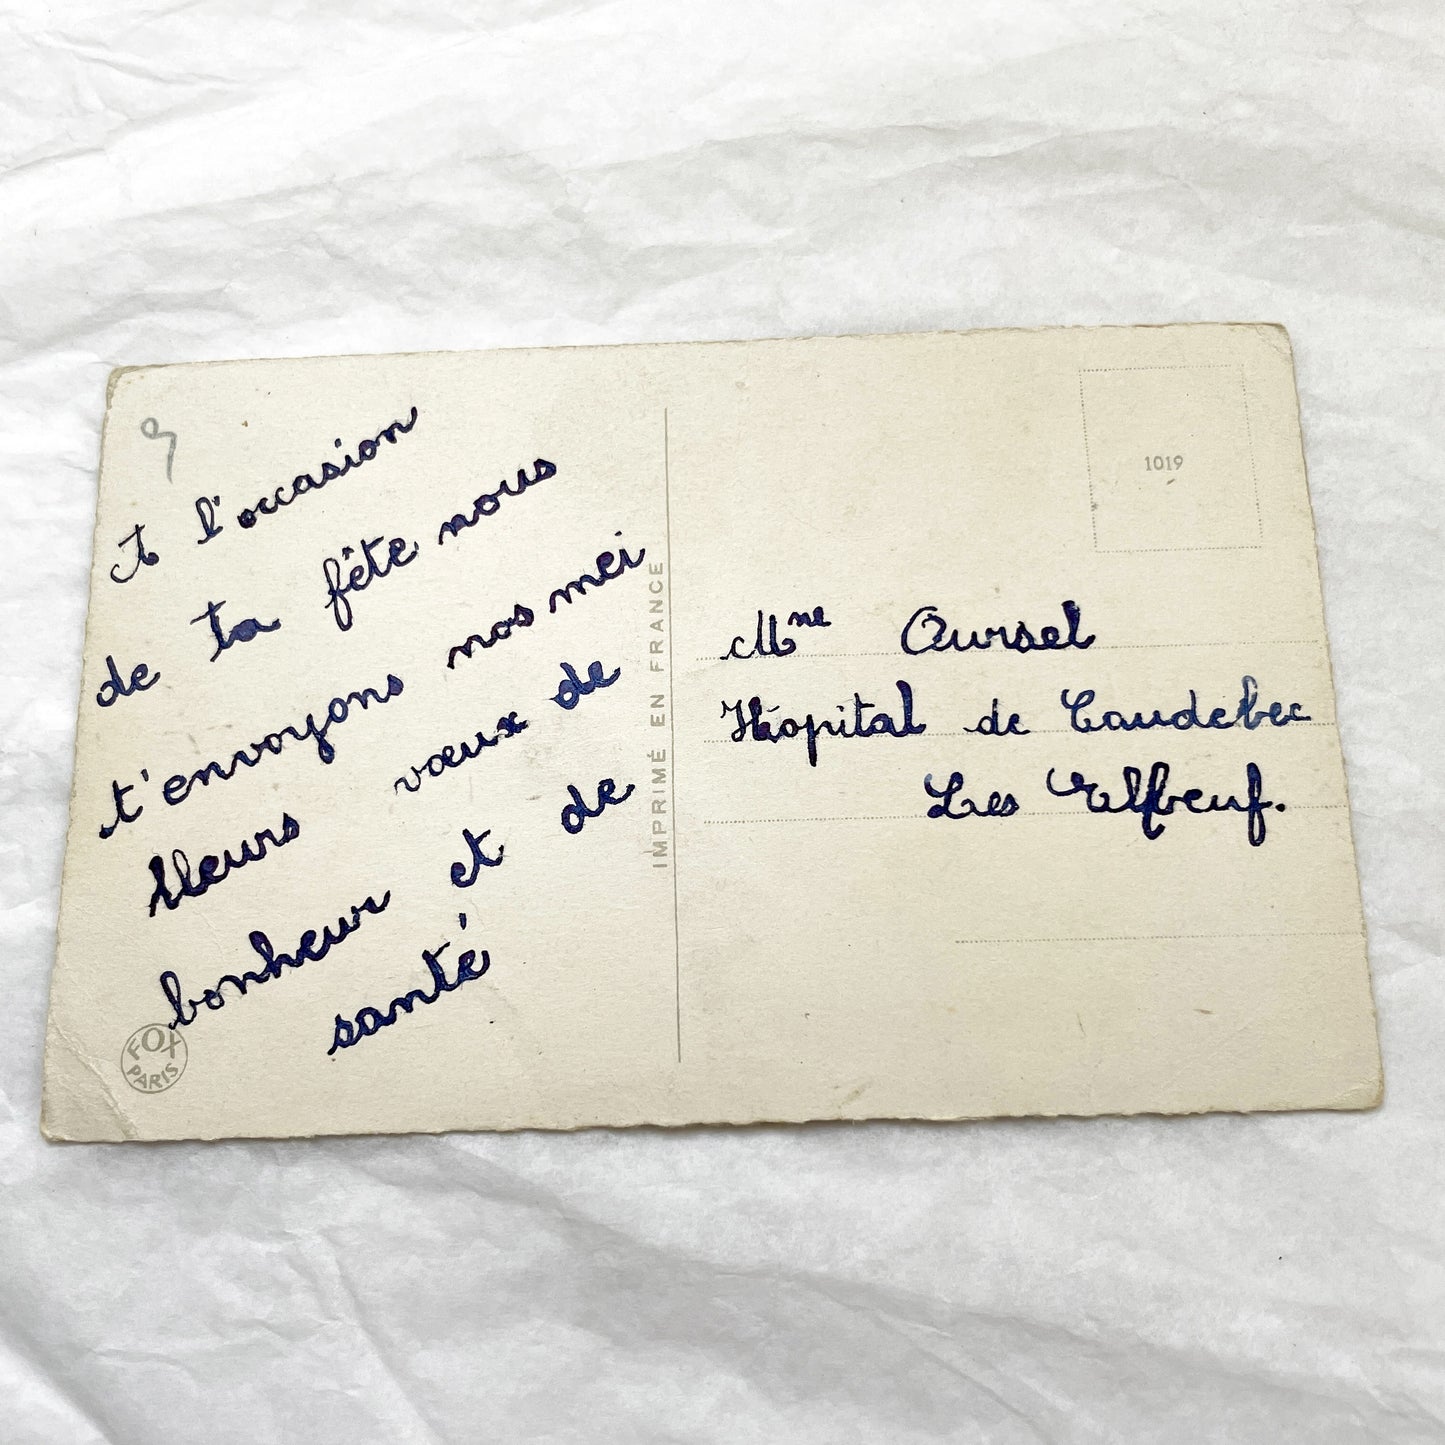 9
A l'occasion
de ta fête nous
t'envoyons nos mei
lleurs vœux de
bonheur et de
santé
FOX
PARIS
IMPRIMÉ EN FRANCE
1019
Mme Oursel
Hôpital de Caudebec
Les Elfbeuf.